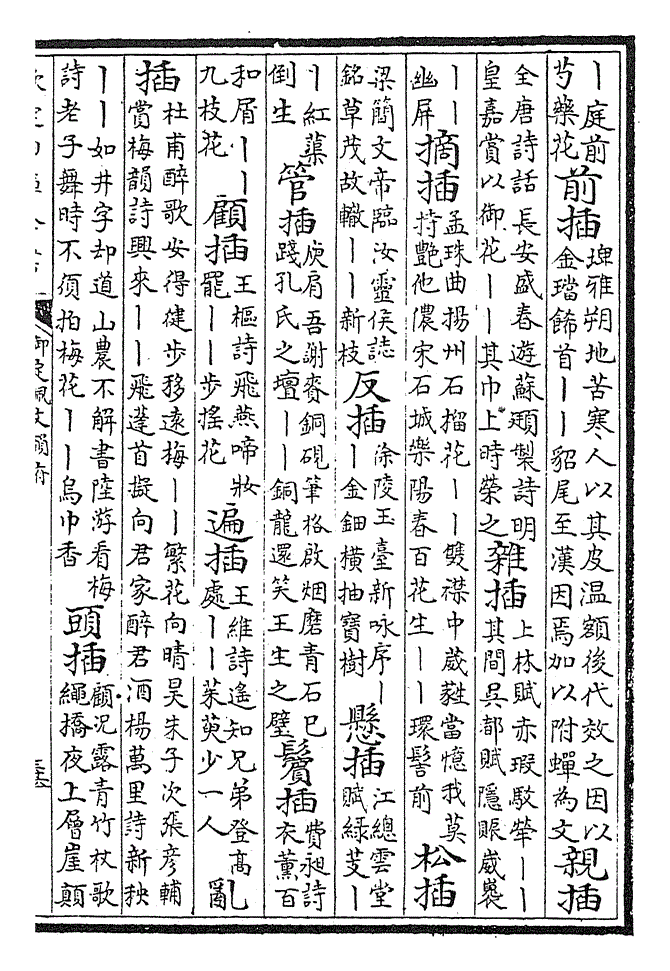 丨庭前芍藥花前插埤雅朔地苦寒人以其皮温額後代效之因以金璫飾首丨丨貂尾至漢因焉加以附蟬為文親插
全唐詩話長安盛春遊蘇頲製詩明皇嘉賞以御花丨丨其巾上時榮之雜插上林賦赤瑕駁犖丨丨其間吳都賦隱賑崴裹
丨丨幽屏摘插孟珠曲揚州石榴花丨丨雙襟中葳蕤當憶我莫持艷他儂宋石城樂陽春百花生丨丨環髻前松插
梁簡文帝臨汝靈侯誌銘草茂故轍丨丨新枝反插徐陵玉臺新咏序丨丨金鈿橫抽寶樹懸插江總雲堂賦綠芰丨
丨紅蕖倒生管插庾肩吾謝賚銅硯筆格啟烟磨青石已踐孔氏之壇丨丨銅龍還笑王生之璧鬢插費昶詩衣薰百
和屑丨丨九枝花顧插王樞詩飛燕啼妝罷丨丨步搖花遍插王維詩遙知兄弟登高處丨丨茱萸少一人亂
插杜甫醉歌安得健步移遠梅丨丨繁花向晴昊朱子次張彦輔賞梅韻詩興來丨丨飛蓬首擬向君家醉君酒楊萬里詩新秧
丨丨如井字却道山農不解書陸游看梅詩老子舞時不須拍梅花丨丨烏巾香頭插顧况露青竹杖歌繩橋夜上層崖顛
御定佩文韻府